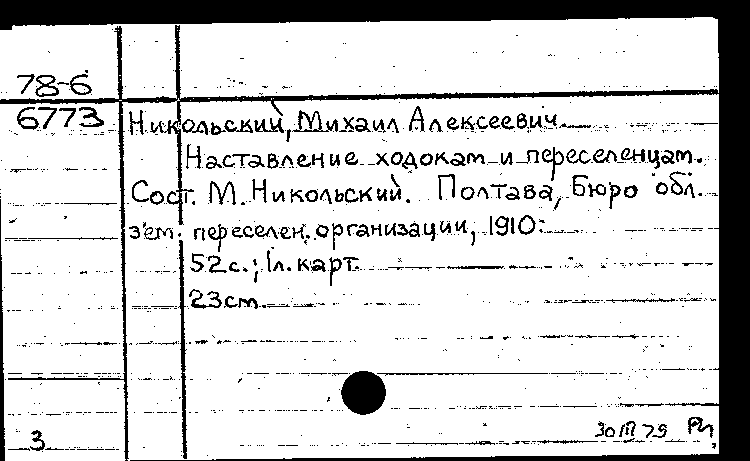 78-6
6773
Никольский, Михаил Алексеевич.
Наставление ходокам и переселенцам.
Сост. М. Никольский. Полтава, Бюро обл.
зем. переселен. организации, 1910.
52с.; 1л. карт.
23см.
3
30 III 79